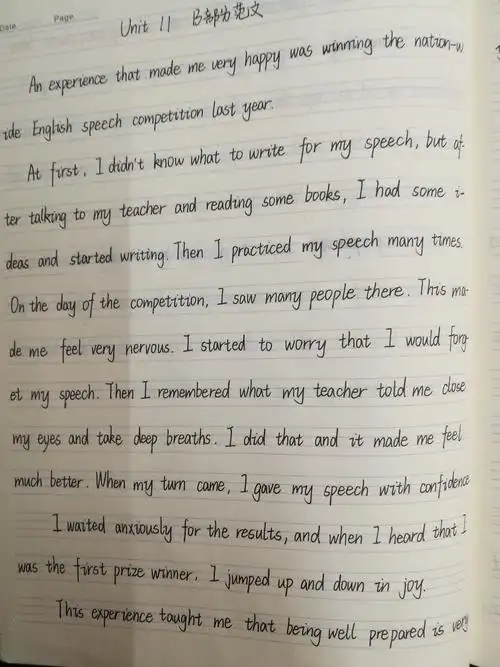 Date    Page
Unit 11 B部分范文
An experience that made me very happy was winning the nation-w
ide English speech competition last year.
At first, I didn't know what to write for my speech, but af-
ter talking to my teacher and reading some books, I had some i-
deas and started writing. Then I practiced my speech many times.
On the day of the competition, I saw many people there. This ma-
de me feel very nervous. I started to worry that I would forg-
et my speech. Then I remembered what my teacher told me close
my eyes and take deep breaths. I did that and it made me feel
much better. When my turn came, I gave my speech with confidence
I waited anxiously for the results, and when I heard that I
was the first prize winner, I jumped up and down in joy.
This experience taught me that being well prepared is very